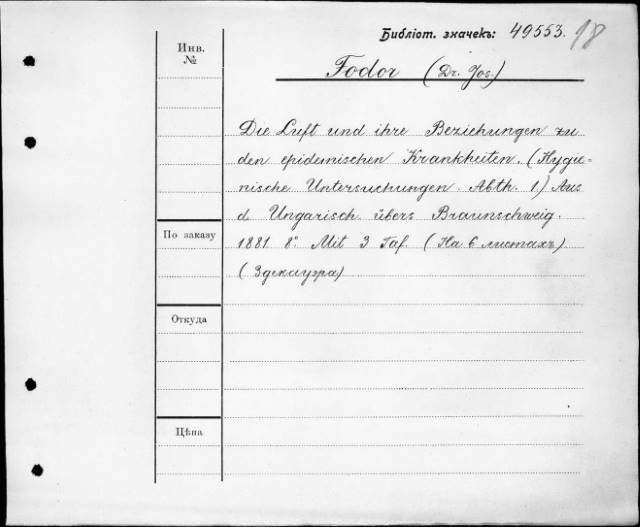 Библіот. значекъ: 49553. 18
Инв.
№
Fodor (Dr. Jos.)
Die Luft und ihre Beziehungen zu
den epidemischen Krankheiten. (Hygie=
nische Untersuchungen. Abth. 1) Aus
d. Ungarisch. übers Braunschweig.
1881. 8°. Mit 3 Taf. (На 6 листахъ)
(3 декзупра)
По заказу
Откуда
Цѣна